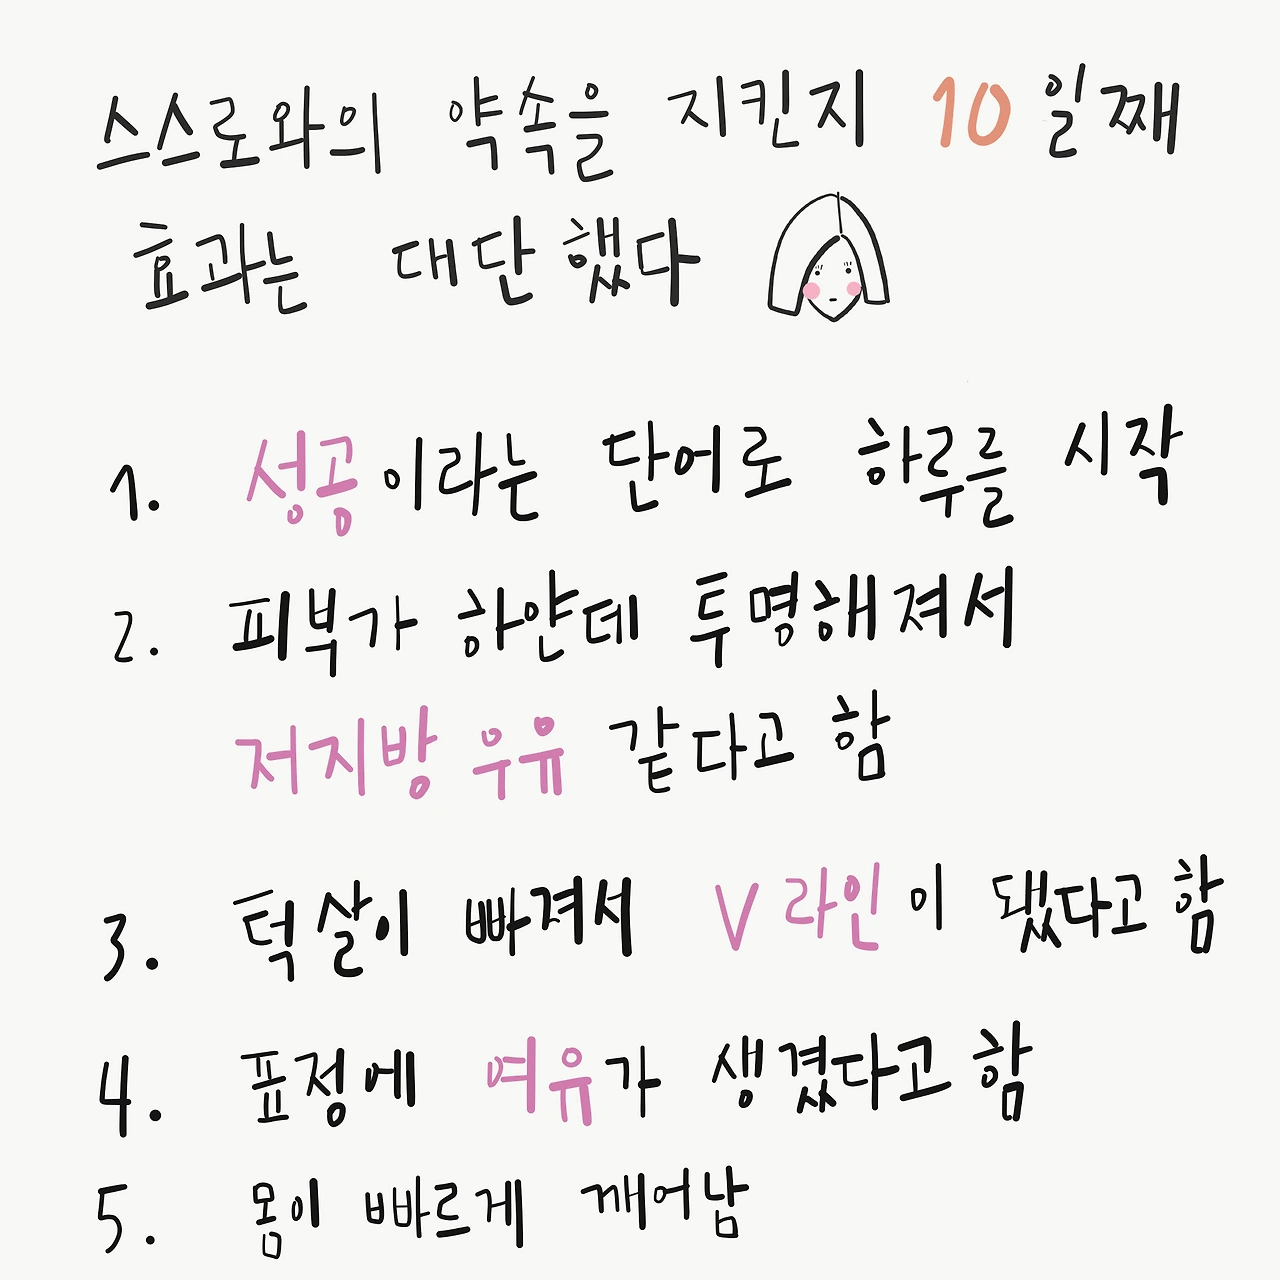 스스로와의 약속을 지킨지 10일째
효과는 대단했다
1. 성공이라는 단어로 하루를 시작
2. 피부가 하얀데 투명해져서
저지방 우유 같다고 함
3. 턱살이 빠져서 V라인이 됐다고 함
4. 표정에 여유가 생겼다고 함
5. 몸이 빠르게 깨어남